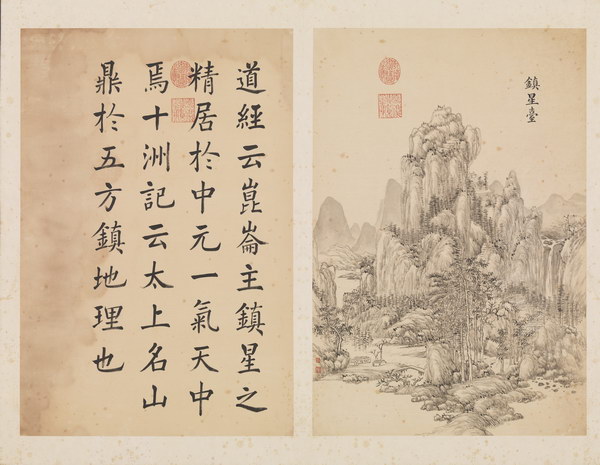 鎮星臺
道經云崑崙主鎮星之
精居於中元一氣天中
焉十洲記云太上名山
鼎於五方鎮地理也